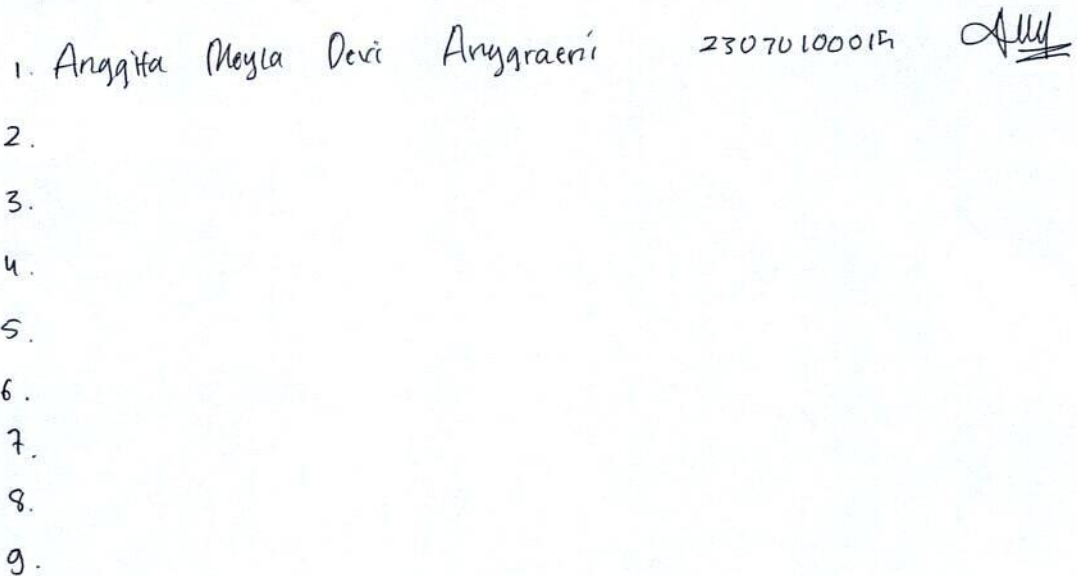 1. Anggita Meyla Devi Anggraeni 23070100015
2.
3.
4.
5.
6.
7.
8.
9.